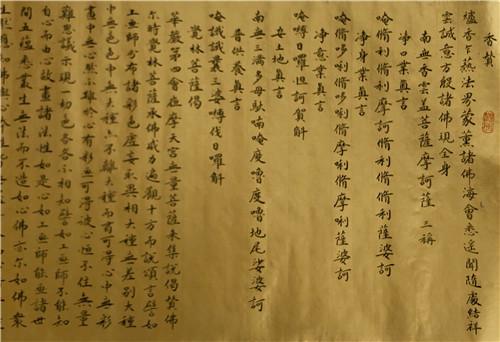 香讚
爐香乍爇法界蒙薰諸佛海會悉遥聞隨處結祥
雲誠意方殷諸佛現全身
南無香雲盖菩薩摩訶薩 三稱
淨口業真言
唵脩利脩利摩訶脩利脩脩利薩婆訶
淨身業真言
唵脩哆唎脩哆唎脩摩唎脩摩唎薩婆訶
淨意業真言
唵嚩日囉怛訶賀斛
安土地真言
南無三滿多母馱喃唵度嚕度嚕地尾娑婆訶
普供養真言
唵誐誐曩三婆嚩伐日囉斛
覺林菩薩偈
華嚴第四會在摩天宮無量菩薩來集說偈贊佛
尒時覺林菩薩承佛威力遍觀十方而說頌言譬如
工畫師分布諸彩色虛妄取異相大種無差別大種
中無色色中無大種亦不離大種而有可得心中無彩
畫中無心然不離於心有彩畫可得彼心恒不住無量
難思議示現一切色各各不相知譬如工畫師不能知
自心而由心故畫諸法性如是心如工畫師能畫諸世
間五蘊悉叢生無法而不造如心佛亦尒如佛衆